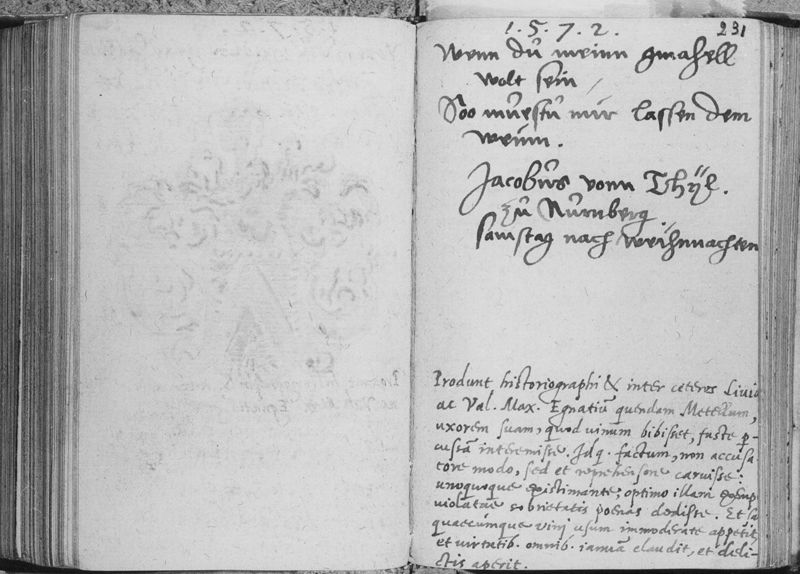 1. 5. 7. 2.
231
Wenn dů meinn gmahell
wolt sein /
Soo můestů mir lassen dem
weinn.
Jacobůs vonn Thÿl.
Zů Nůrnberg.
samstag nach weihnnachten
Produnt historiographi & inter ceteros Livius
ac Val. Max. Egnatiū quendam Metellum,
uxorem suam, quod vinum bibisset, fuste p-
cussā interemisse. Idq. factum, non accusa
tore modo, sed et reprehensore caruisse:
unoquoque existimante, optimo illam exemp
violatae sobrietatis poenas dedisse. Et sa
quaecumque vini usum immoderate appetit,
et virtutib. omnib. ianuā claudit, et deli-
ctis aperit.